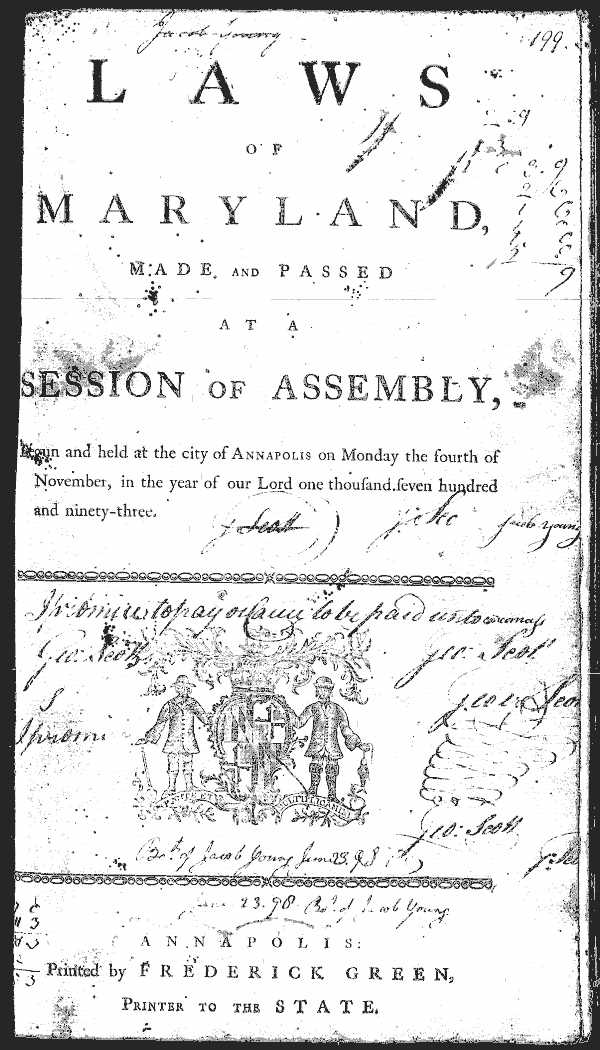 Jacob Young
199.
LAWS
OF
MARYLAND,
MADE AND PASSED
AT A
SESSION OF ASSEMBLY,
Begun and held at the city of ANNAPOLIS on Monday the fourth of
November, in the year of our Lord one thouſand ſeven hundred
and ninety-three.
Scott
Jacob Young
I promise to pay or cause to be paid unto
Geo: Scott
Geo: Scott
Geo: Scott
Bot. of Jacob Young June 23. 98
June 23. 98 Bot. of Jacob Young
ANNAPOLIS:
Printed by FREDERICK GREEN,
PRINTER TO THE STATE.